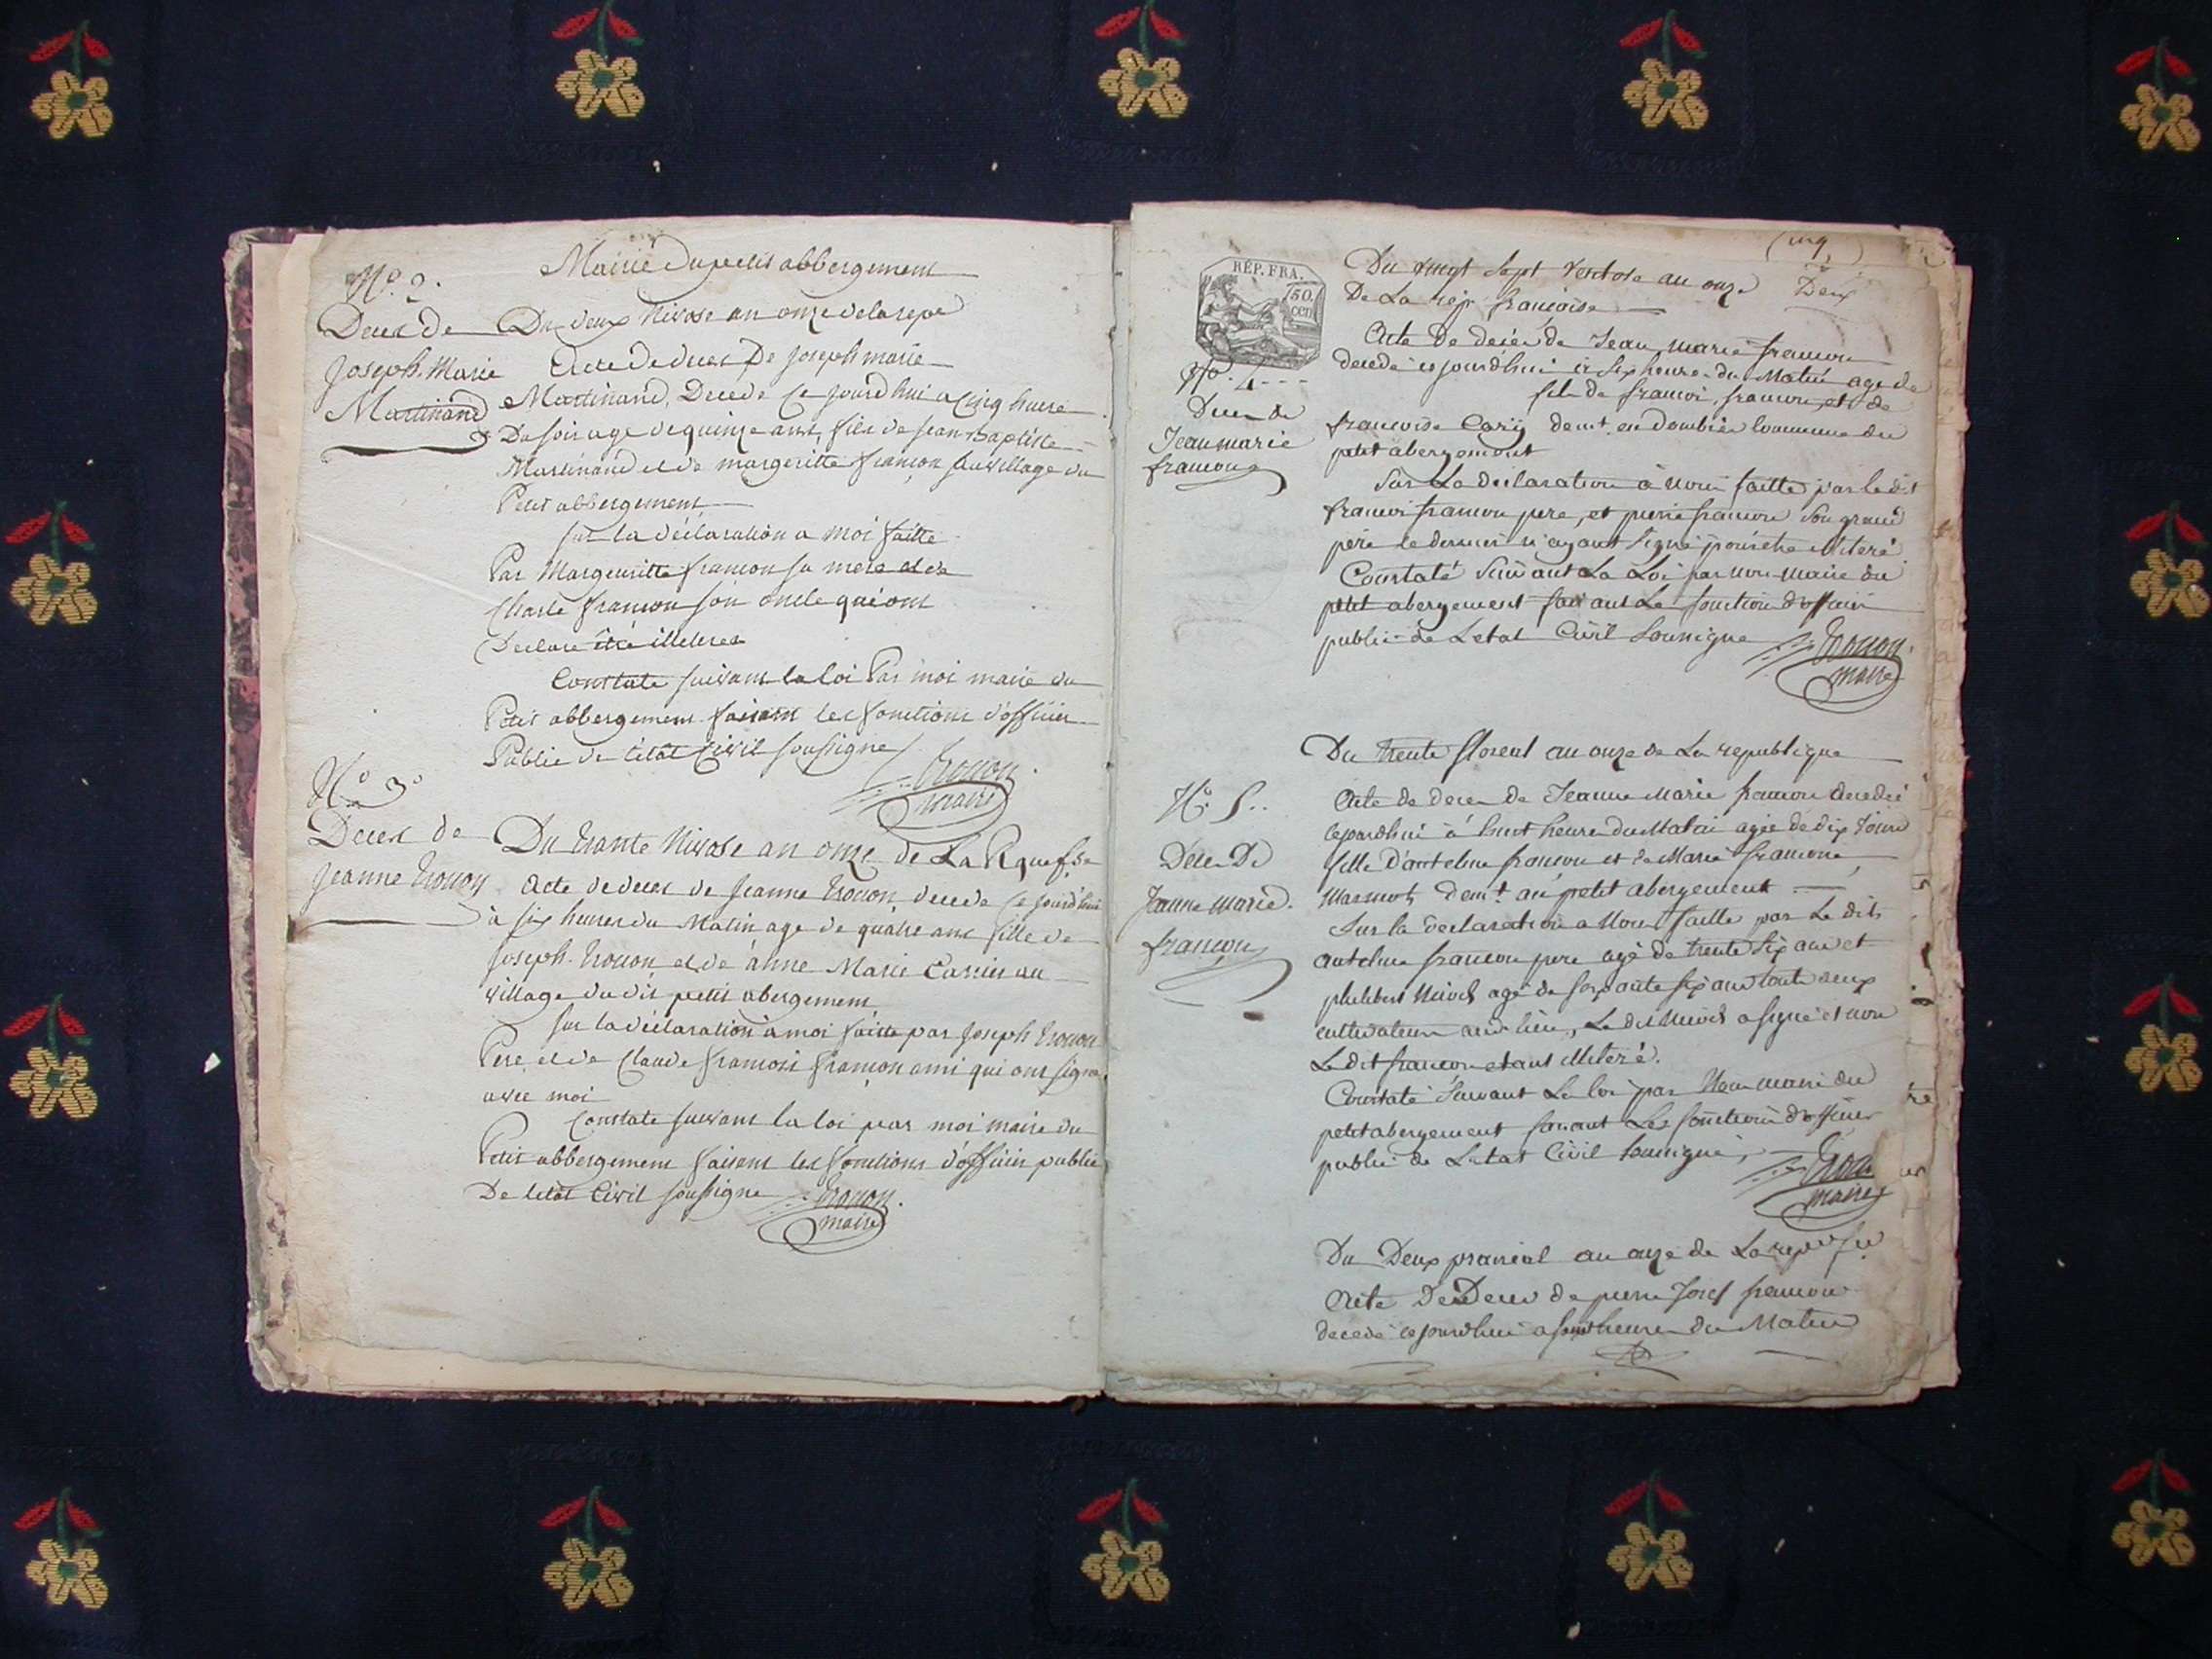 Mairie du petit abbergement
N.o 2.
Deces de
Joseph Marie
Martinand
Du deux Nivose an onze de la repe
Acte de deces De Joseph marie
Martinand, Decede Ce jourd'hui a Cinq heure
Du soir age de quinze ans, fils de jean Baptiste
Martinand et de margeritte françon du village du
Petit abbergement
sur la déclaration a moi faitte
Par Margeuritte françon sa mere et de
Charle françon son oncle qui ont
Declare être illeteres
Constate suivant la loi Par moi maire du
Petit abbergement faisant les fonctions d'officier
Public de létat Civil soussigne
maire
N.o 3.o
Deces de
Jeanne
Du trante Nivose an onze de La
Acte de deces de Jeanne decede Ce jourd'hui
à six heures du Matin age de quatre ans fille de
joseph et de anne Marie Carrier au
village du dit petit abergement
sur la déclaration à moi faitte par joseph
Pere et de Claude françois françon ami qui ont signe
avec moi
Constate suivant la loi par moi maire du
Petit abbergement faisant les fonctions d'officier public
De letat Civil soussigne
maire
Deux
RÉP. FRA.
50.
cen
Du vingt sept Ventose an onze
De La rep françoise
Acte De décés de Jean marie françon
decedé cejourdhui à six heure du Matin agé de
fils de francoi, françon, et de
N.o 4
Deces de
Jean marie
françon
francoise demt. en Dombier Commune du
petit abergement
Sur La declaration à nous faitte par le dit
francoi françon pere, et pierre françon son grand
père le dernier n'ayant signé pour etre illiteré
Constaté Suivant La Loi par nous maire du
petit abergement faisant Le fonction d'officier
public de Letat Civil soussigne
maire
Du trente floreal an onze de La republique
N.o 5..
Deces De
Jeanne marie
françon
Acte de deces de Jeanne Marie françon decedée
cejourdhui à huit heure du Matin agée de dix Jours
fille D'antelme françon et de Marie françoise
demt. au petit abergement
Sur la declaration a Nous faitte par Le dit
antelme françon pere agé de trente six ans et
philibert agé de soixante six ans tout deux
cultivateur audit lieu, Le dit a signé et non
Le dit françon etant illiteré.
Constaté Suivant La loi par Nous maire du
petit abergement faisant Les fonction d'officier
public de Letat Civil soussigné,
maire
Du Deux prairial an onze de La
Acte De Deces de pierre Josef françon
decedé cejourdhui a heure du Matin